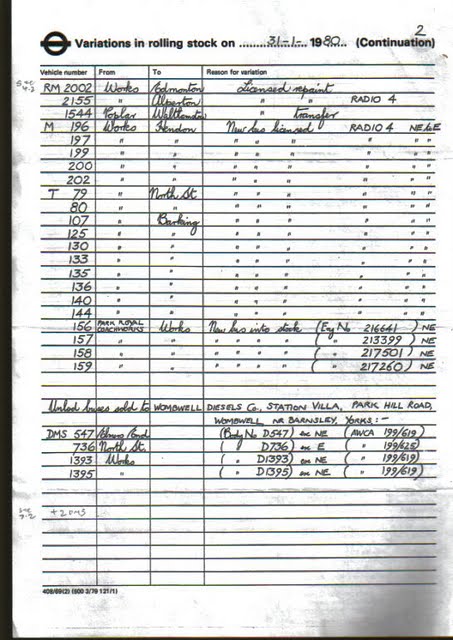 2
Variations in rolling stock on 31-1- 1980 (Continuation)
Vehicle number From To Reason for variation
RM 2002 Works Edmonton Licensed repaint
2155 " Alperton " " RADIO 4
1544 Poplar " transfer
M 196 Works Hendon New bus licensed RADIO 4 NE
197 " " " " " " " "
199 " " " " " " " "
200 " " " " " " " "
202 " " " " " " " "
T 79 " North St. " " " " " "
80 " " " " " " " "
107 " Barking " " " " " "
125 " " " " " " " "
130 " " " " " " " "
133 " " " " " " " "
135 " " " " " " " "
136 " " " " " " " "
140 " " " " " " " "
144 " " " " " " " "
156 PARK ROYAL COACHWORKS Works New bus into stock (Eng No 216641) NE
157 " " " " " " ( " 213399) NE
158 " " " " " " ( " 217501) NE
159 " " " " " " ( " 217260) NE
Unlicd buses sold to WOMBWELL DIESELS Co., STATION VILLA, PARK HILL ROAD,
WOMBWELL NR BARNSLEY, YORKS:-
DMS 547 (Body No D547) ex NE (AWCA 199/619)
736 North St. ( " D736) ex E ( " 199/625)
1393 Works ( " D1393) ex NE ( " 199/619)
1395 " ( " D1395) ex NE ( " 199/619)
+2 DMS
408/89(2) (500 3/79 121/1)